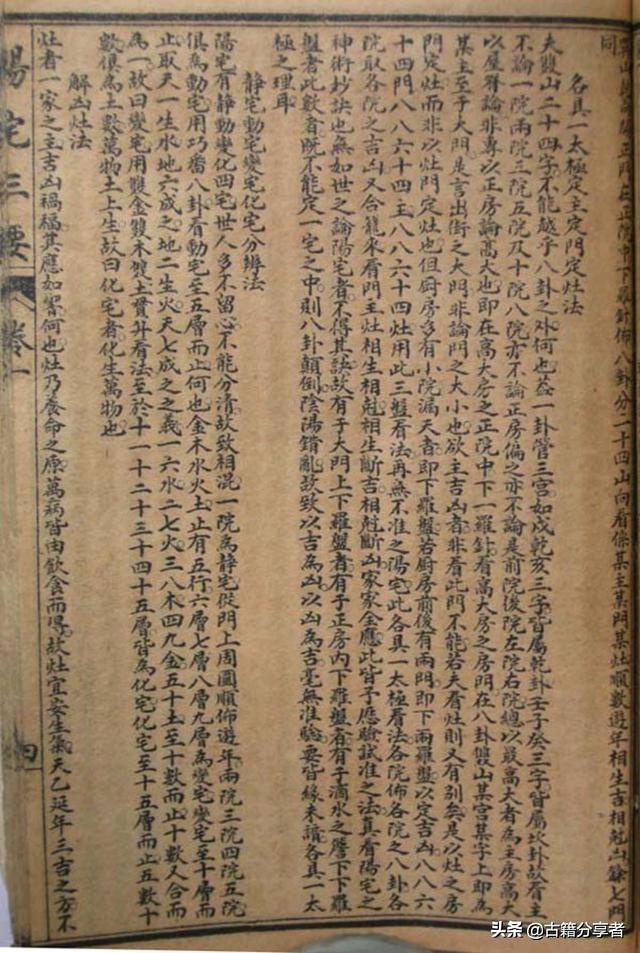 正門在正院中下羅針佈八卦分二十四山向看係某主某門某灶順數遊年相生吉相剋凶餘七門
同
各具一太極定主定門定灶法
夫雙山二十四字不能越乎八卦之外何也蓋一卦管三宮如戌乾亥三字皆屬乾卦壬子癸三字皆屬坎卦故看主
不論一院兩院三院五院及十院八院亦不論正房偏之亦不論是前院後院左院右院總以最高大者為主房高大
以屋脊論非專以正房論高大也即在高大房之正院中下一羅針看高大房之房門在八卦雙山某宮某字上即為
某主至于大門是言出街之大門非論門之大小也欲主吉凶者非看此門不能若夫看灶則又有別矣是以灶之房
門定灶而非以灶門定灶也但厨房多有小院漏天者即下羅盤若厨房前後有兩門即下兩羅盤以定吉凶八八六
十四門八八六十四主八八六十四灶用此三盤看法再無不准之陽宅此各具一太極看法各院佈各院之八卦各
院取各院之吉凶又合籠來看門主灶相生相剋相生斷吉相剋斷凶家家全應此皆予歷驗試准之法真看陽宅之
神術妙訣也無如世之論陽宅者不得其訣故有于大門上下羅盤者有于正房內下羅盤者有于滴水之簷下下羅
盤者此數者既不能定一宅之中則八卦顛倒陰陽錯亂故致以吉為凶以凶為吉毫無准驗要皆緣未讀各具一太
極之理耳
静宅動宅變宅化宅分辨法
陽宅有静動變化四宅世人多不留心不能分清故致相混一院為静宅從門上周圖順佈遊年兩院三院四院五院
俱為動宅用巧番八卦看動宅至五層而止何也金木水火土止有五行六層七層八層九層為變宅變宅至十層而
止取天一生水地六成之地二生火天七成之之義一六水二七火三八木四九金五十土至十數而止十數又合而
為一故曰變宅用雙金雙木雙土貫井看法至於十一十二十三十四十五層皆為化宅化宅至十五層而止五數十
數俱為土數萬物土上生故曰化宅者化生萬物也
解凶灶法
灶者一家之主吉凶禍福其應如響何也灶乃養命之原萬病皆由飲食而得故灶宜安生氣天乙延年三吉之方不
陽宅三要
卷一
四
头条@古籍分享者